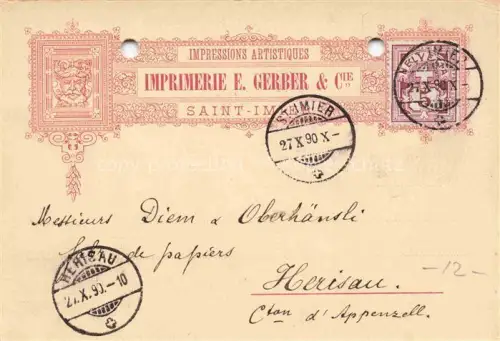 IMPRESSIONS ARTISTIQUES
IMPRIMERIE E. GERBER & CIE
SAINT-IM
ST. IMIER
27 X 90 X-
27 X 90 X-
Messieurs Diem & Oberhänsli
de papiers
Herisau.
Cton d'Appenzell.
-12-
HERISAU
27.X.90.-10